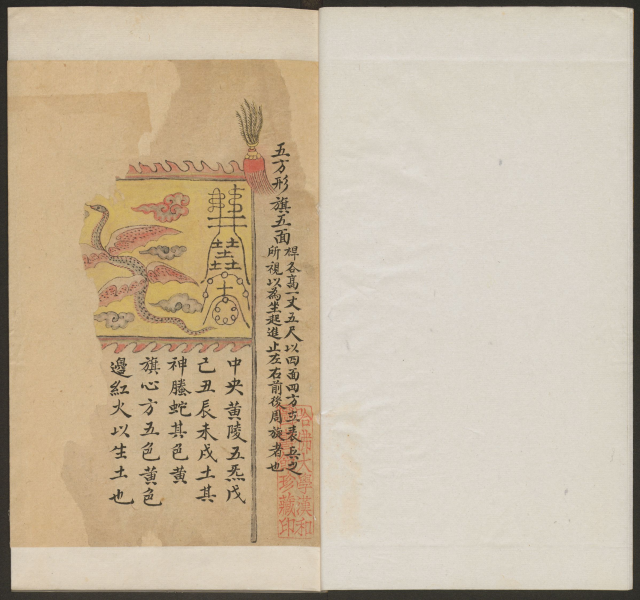 五方形旗五面
桿各高一丈五尺以四面四方立表兵之
所視以為坐起進止左右前後周旋者也
中央黄陵五炁戊
己丑辰未戌土其
神螣蛇其色黄
旗心方五色黄色
邊紅火以生土也
哈佛大學漢和
珍藏印